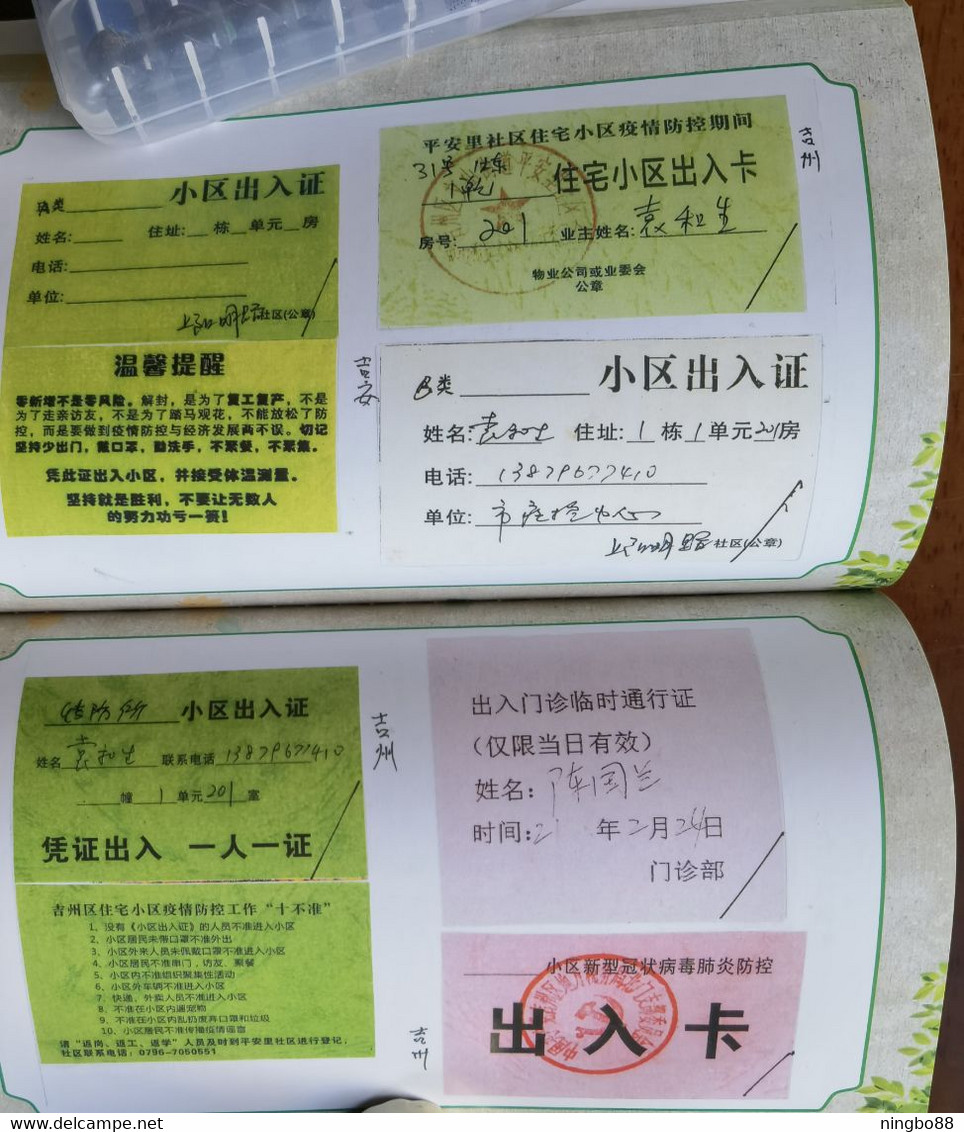 小区出入证
A类
姓名: 住址: 栋 单元 房
电话:
单位:
上阳明路社区(公章)
温馨提醒
零新增不是零风险。解封,是为了复工复产,不是
为了走亲访友,不是为了踏马观花,不能放松了防
控,而是要做到疫情防控与经济发展两不误。切记
坚持少出门,戴口罩,勤洗手,不聚餐,不聚集。
凭此证出入小区,并接受体温测量。
坚持就是胜利,不要让无数人
的努力功亏一篑!
平安里社区住宅小区疫情防控期间
31号
住宅小区出入卡
房号: 201 业主姓名: 袁和生
物业公司或业委会
公章
吉州
吉安
小区出入证
B类
姓名: 袁和生 住址: 1 栋 1 单元 201 房
电话: 13879677410
单位: 市疾控中心
上阳明路社区(公章)
结防所 小区出入证
姓名 袁和生 联系电话 13879677410
幢 1 单元 201 室
凭证出入 一人一证
吉州
吉州区住宅小区疫情防控工作“十不准”
1、没有《小区出入证》的人员不准进入小区
2、小区居民未带口罩不准外出
3、小区外来人员未佩戴口罩不准进入小区
4、小区居民不准串门,访友,聚餐
5、小区内不准组织聚集性活动
6、小区外车辆不准进入小区
7、快递、外卖人员不准进入小区
8、不准在小区内遛宠物
9、不准在小区内乱扔废弃口罩和垃圾
10、小区居民不准传播疫情谣言
请“返岗、返工、返学”人员及时到平安里社区进行登记,
社区联系电话:0796-7050551
出入门诊临时通行证
(仅限当日有效)
姓名: 陈国兰
时间: 21 年 2 月 24 日
门诊部
小区新型冠状病毒肺炎防控
出入卡
吉州
ningbo88